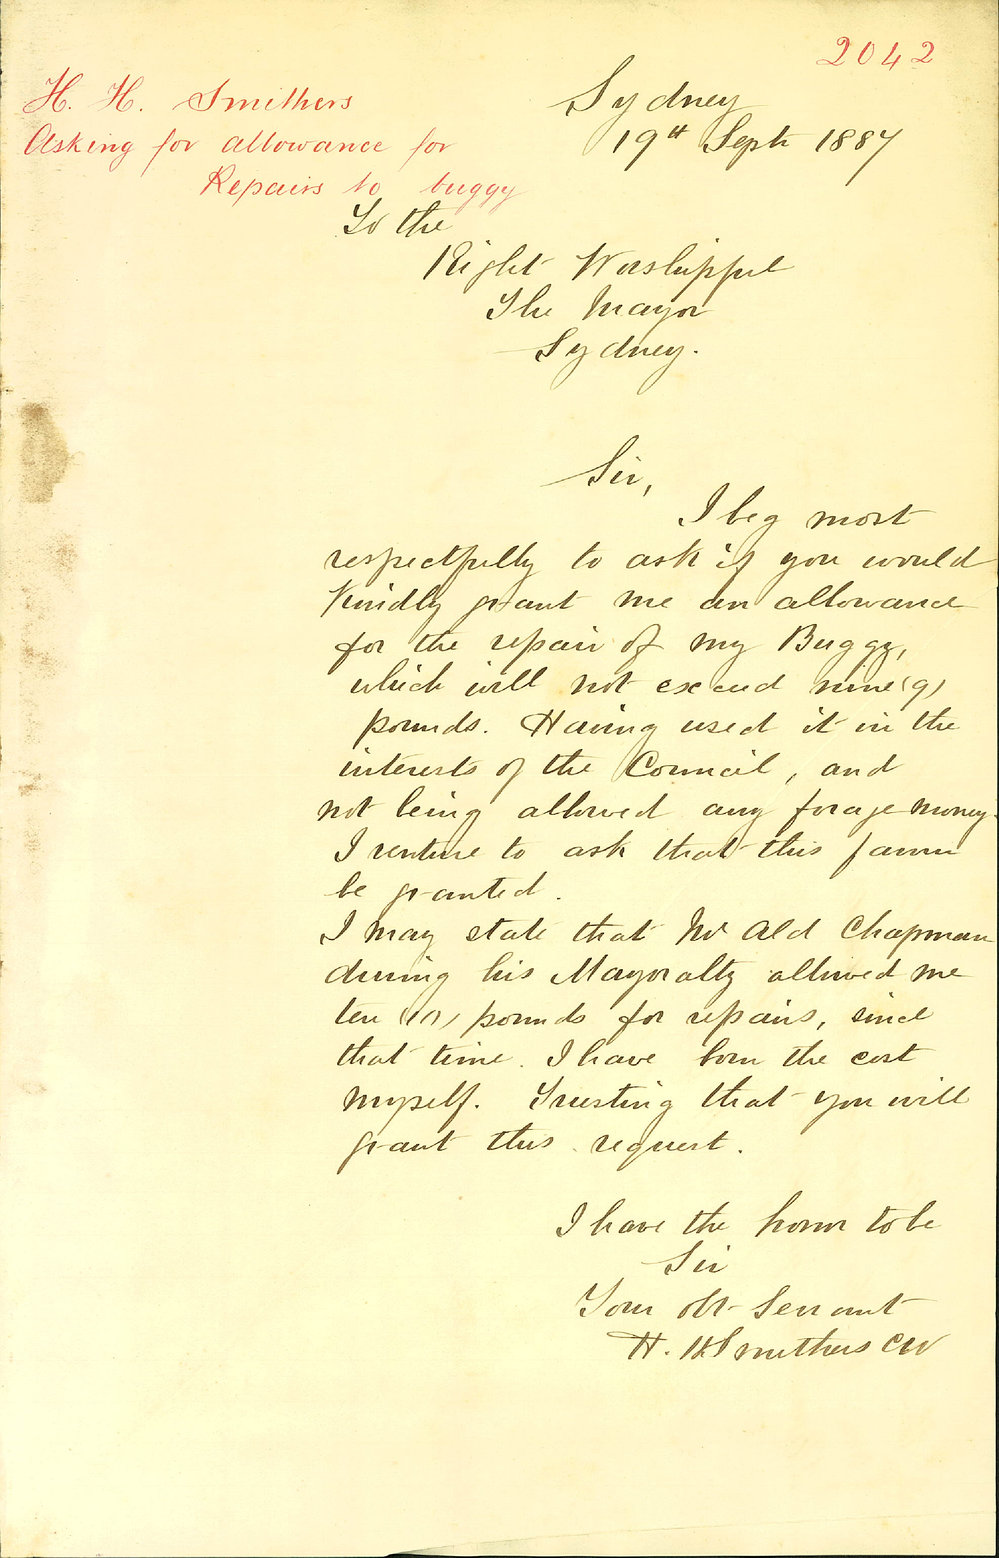 2042
H. H. Smithers
Asking for allowance for
Repairs to buggy
Sydney
19th Sept 1887
To the
Right Worshipful
The Mayor
Sydney.
Sir,
I beg most
respectfully to ask if you would
Kindly grant me an allowance
for the repair of my Buggy,
which will not exceed nine (9)
pounds. Having used it in the
interests of the Council, and
not being allowed any forage money
I venture to ask that this favor
be granted.
I may state that Mr Ald Chapman
during his Mayoralty allowed me
ten (10) pounds for repairs, since
that time. I have born the cost
myself. Trusting that you will
grant this request.
I have the honor to be
Sir
Your obt Servant
H. H Smithers CW